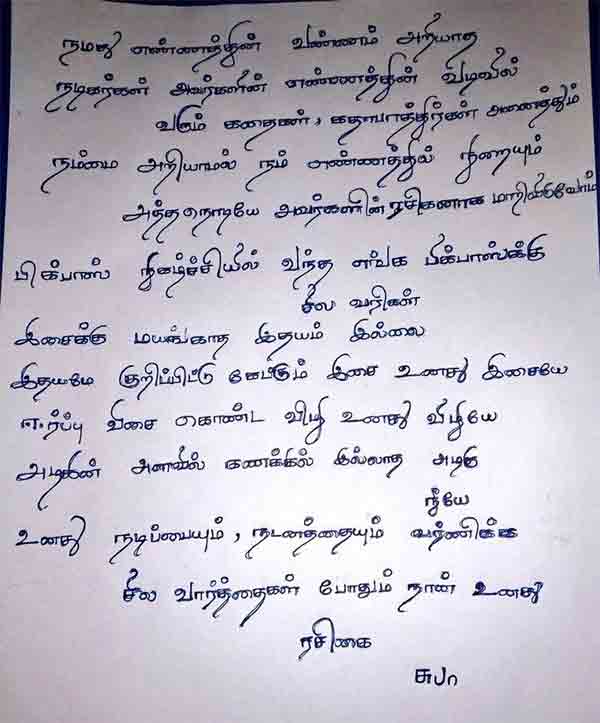 நமது எண்ணத்தின் வண்ணம் அறியாத
நடிகர்கள் அவர்களின் எண்ணத்தின் வடிவில்
வரும் கதைகள், கதாபாத்திரங்கள் அனைத்தும்
நம்மை அறியாமல் நம் எண்ணத்தில் நிறையும்
அந்த நொடியே அவர்களின் ரசிகனாக மாறிவிடுவோம்
பிக்பாஸ் நிகழ்ச்சியில் வந்த எங்க பிக்பாஸ்க்கு
சில வரிகள்
இசைக்கு மயங்காத இதயம் இல்லை
இதயமே குறிப்பிட்டு கேட்கும் இசை உனது இசையே
ஈர்ப்பு விசை கொண்ட விழி உனது விழியே
அழகின் அளவில் கணக்கில் இல்லாத அழகு
நீயே
உனது நடிப்பையும், நடனத்தையும் வர்ணிக்க
சில வார்த்தைகள் போதும் நான் உனது
ரசிகை
சுபா